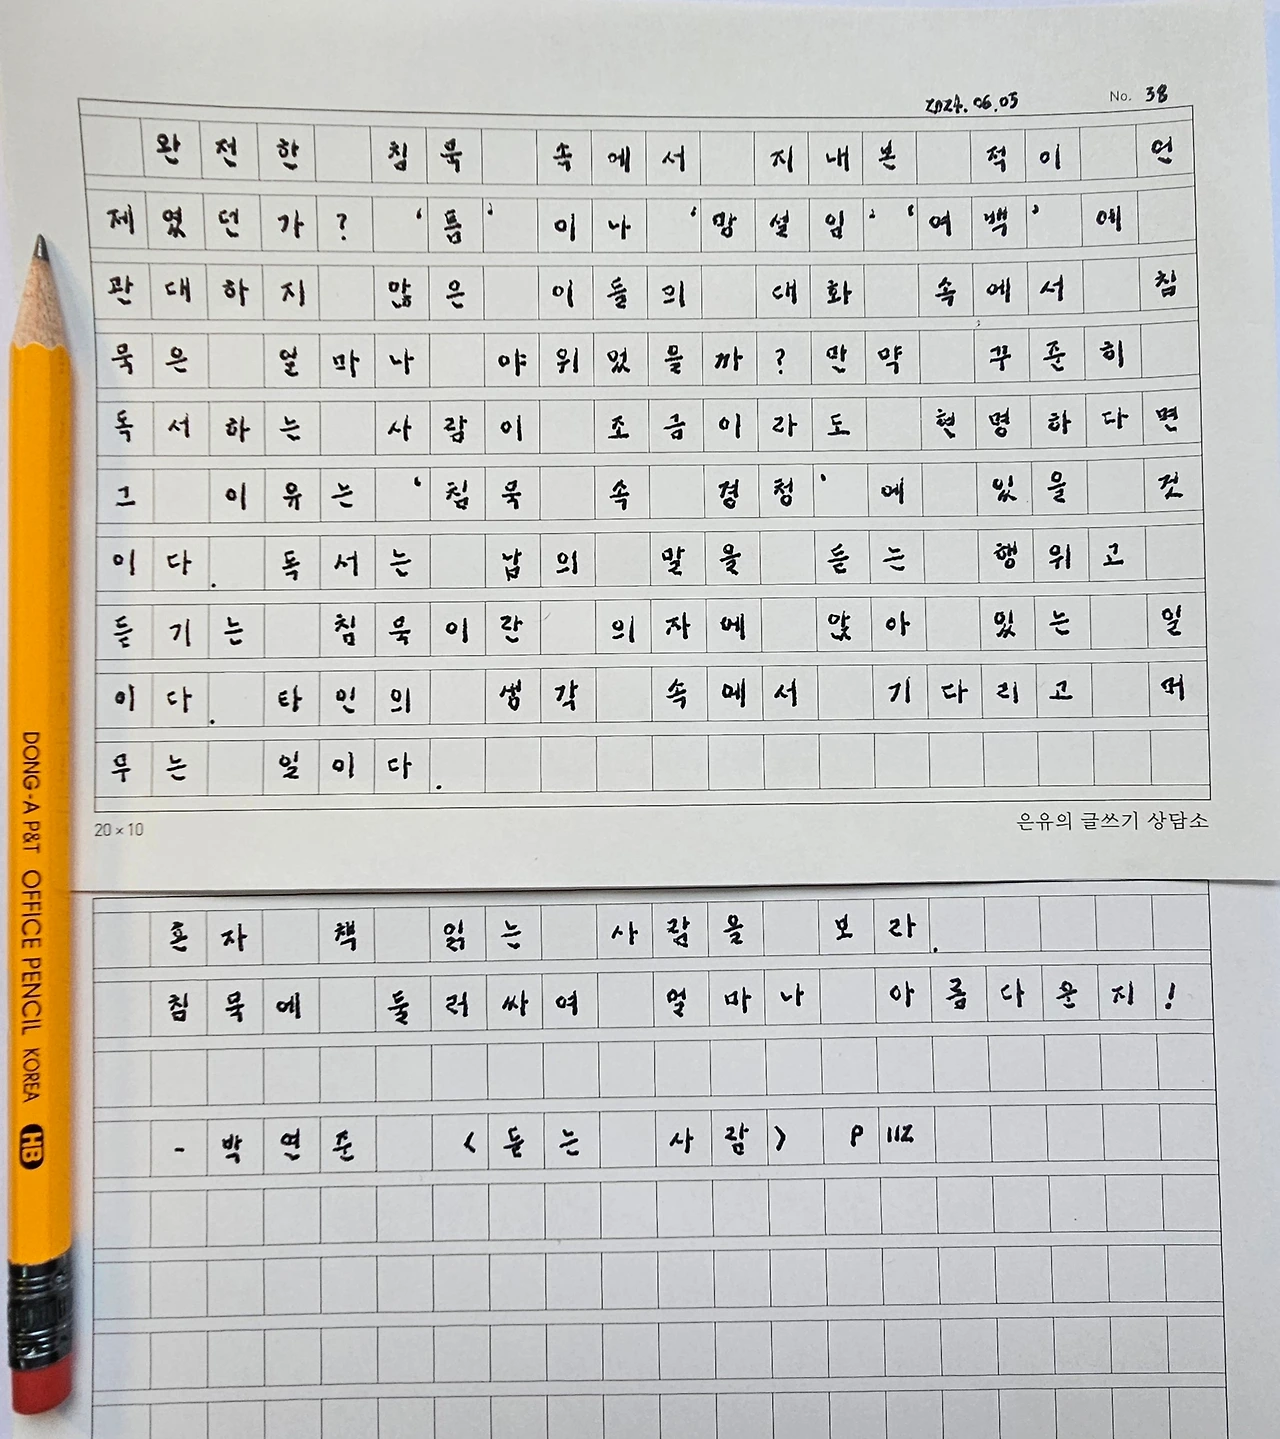 2024.06.05 No. 38
완전한 침묵 속에서 지내본 적이 언
제였던가? ‘틈’ 이나 ‘망설임’ ‘여백’ 에
관대하지 않은 이들의 대화 속에서 침
묵은 얼마나 야위었을까? 만약 꾸준히
독서하는 사람이 조금이라도 현명하다면
그 이유는 ‘침묵 속 경청’ 에 있을 것
이다. 독서는 남의 말을 듣는 행위고
듣기는 침묵이란 의자에 앉아 있는 일
이다. 타인의 생각 속에서 기다리고 머
무는 일이다.
20×10 은유의 글쓰기 상담소
혼자 책 읽는 사람을 보라.
침묵에 둘러싸여 얼마나 아름다운지!
- 박연준 <듣는 사람> P 112
DONG-A P&T OFFICE PENCIL KOREA HB